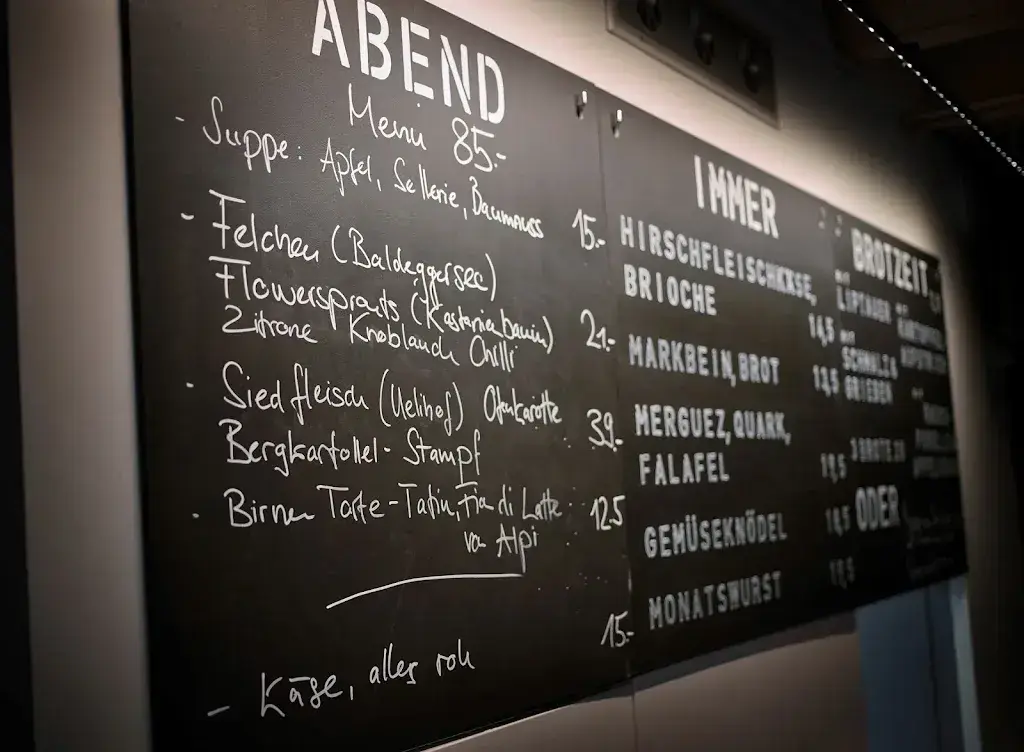 ABEND
Menü 85.-
- Suppe: Apfel, Sellerie, Baumnuss 15.-
- Felchen (Baldeggersee)
Flowersprouts (Kastanienbaum) 21.-
Zitrone Knoblauch Chilli
- Siedfleisch (Uelihof) Ofenkarotte 39.-
Bergkartoffel- Stampf
- Birnen Tarte-Tatin, Fior di Latte 12.5
von Alpi
- Käse, alles roh 15.-
IMMER
HIRSCHFLEISCHKÄSE,
BRIOCHE 14,5
MARKBEIN, BROT 13,5
MERGUEZ, QUARK,
FALAFEL 19,5
GEMÜSEKNÖDEL 18,5
MONATSWURST
BROTZEIT
MIT
LIPTAUER
MIT
SCHMALZ &
GRIEBEN
3 BROTE
ODER